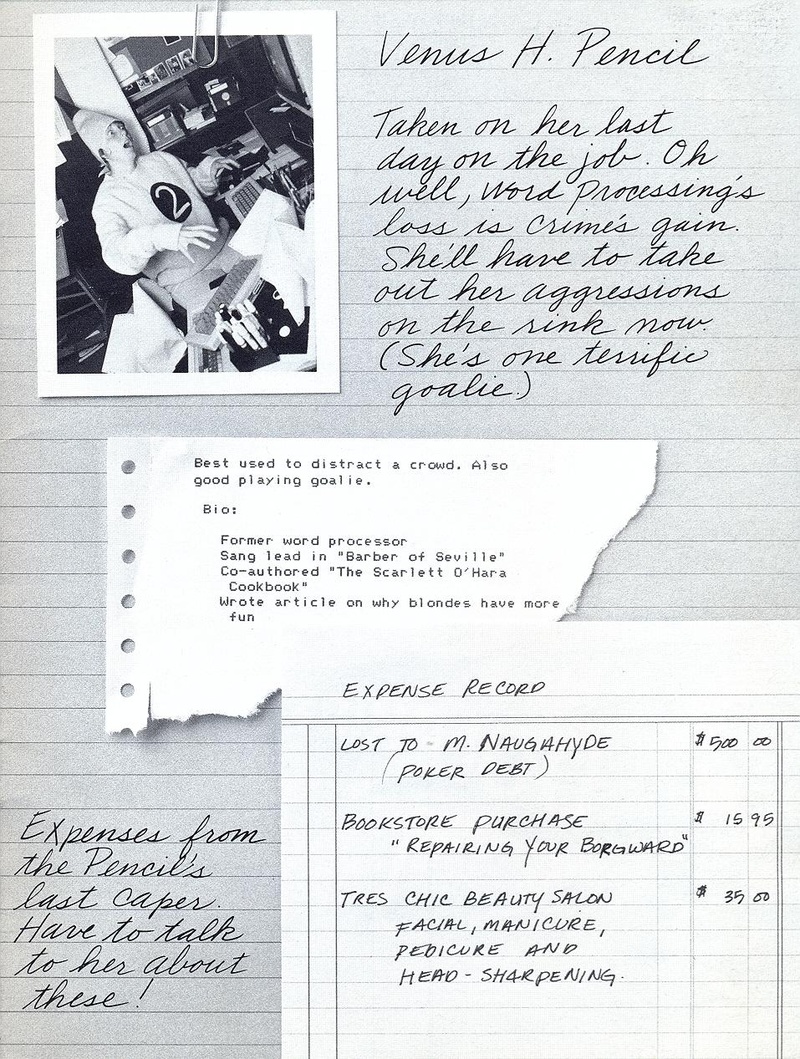 Venus H. Pencil
Taken on her last
day on the job. Oh
well, Word Processing's
loss is crime's gain.
She'll have to take
out her aggressions
on the rink now.
(She's one terrific
goalie.)
2
Best used to distract a crowd. Also
good playing goalie.
Bio:
Former word processor
Sang lead in "Barber of Seville"
Co-authored "The Scarlett O'Hara
Cookbook"
Wrote article on why blondes have more
fun
EXPENSE RECORD
LOST TO M. NAUGAHYDE $500 00
(POKER DEBT)
BOOKSTORE PURCHASE $ 15 95
"REPAIRING YOUR BORGWARD"
TRES CHIC BEAUTY SALON $ 35 00
FACIAL, MANICURE,
PEDICURE AND
HEAD-SHARPENING.
Expenses from
the Pencil's
last caper.
Have to talk
to her about
these!